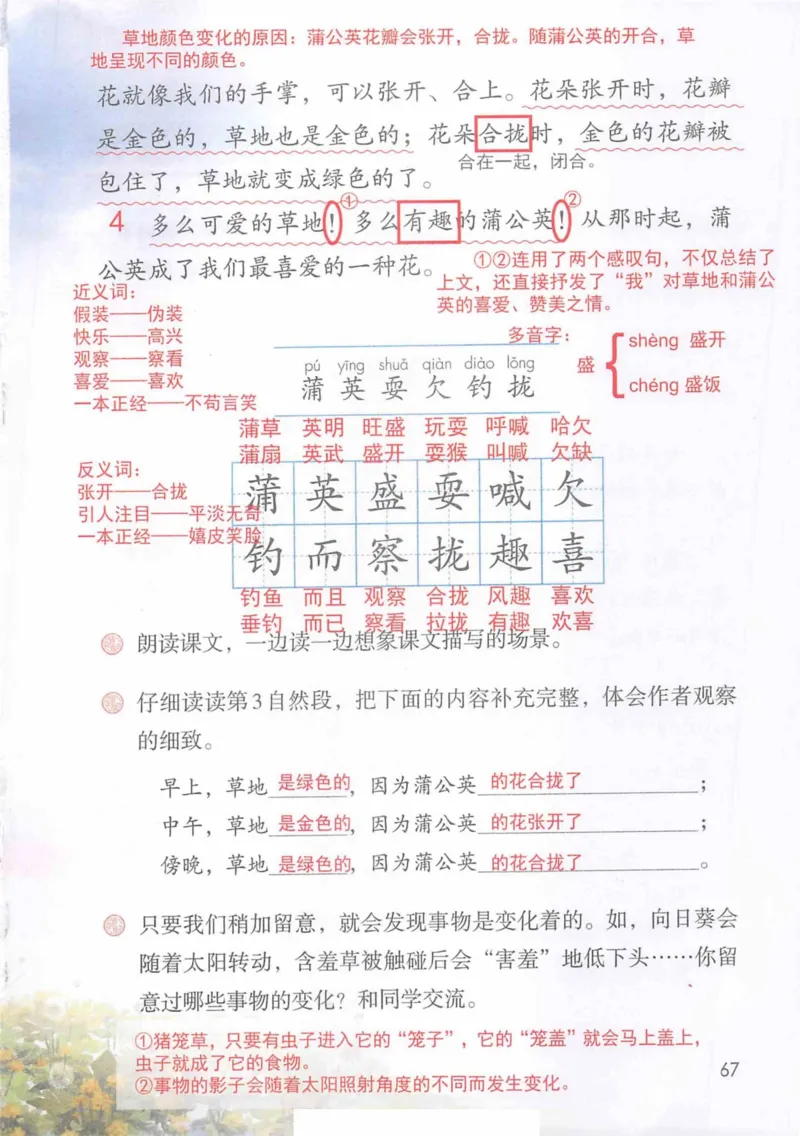 草地颜色变化的原因：蒲公英花瓣会张开，合拢。随蒲公英的开合，草
地呈现不同的颜色。
花就像我们的手掌，可以张开、合上。花朵张开时，花瓣
是金色的，草地也是金色的；花朵合拢时，金色的花瓣被
合在一起，闭合。
包住了，草地就变成绿色的了。
① ②
4 多么可爱的草地！多么有趣的蒲公英！从那时起，蒲
公英成了我们最喜爱的一种花。
①②连用了两个感叹句，不仅总结了
上文，还直接抒发了“我”对草地和蒲公
英的喜爱、赞美之情。
近义词：
假装——伪装
快乐——高兴
观察——察看
喜爱——喜欢
一本正经——不苟言笑
多音字：
盛 { shèng 盛开
chéng 盛饭
pú yīng shuǎ qiàn diào lǒng
蒲 英 耍 欠 钓 拢
蒲草 英明 旺盛 玩耍 呼喊 哈欠
蒲扇 英武 盛开 耍猴 叫喊 欠缺
反义词：
张开——合拢
引人注目——平淡无奇
一本正经——嬉皮笑脸
蒲 英 盛 耍 喊 欠
钓 而 察 拢 趣 喜
钓鱼 而且 观察 合拢 风趣 喜欢
垂钓 而已 察看 拉拢 有趣 欢喜
朗读课文，一边读一边想象课文描写的场景。
仔细读读第3自然段，把下面的内容补充完整，体会作者观察
的细致。
早上，草地 是绿色的，因为蒲公英 的花合拢了；
中午，草地 是金色的，因为蒲公英 的花张开了；
傍晚，草地 是绿色的，因为蒲公英 的花合拢了。
只要我们稍加留意，就会发现事物是变化着的。如，向日葵会
随着太阳转动，含羞草被触碰后会“害羞”地低下头……你留
意过哪些事物的变化？和同学交流。
①猪笼草，只要有虫子进入它的“笼子”，它的“笼盖”就会马上盖上，
虫子就成了它的食物。
②事物的影子会随着太阳照射角度的不同而发生变化。
67